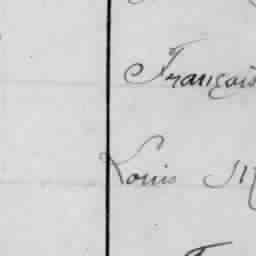 François
Louis M